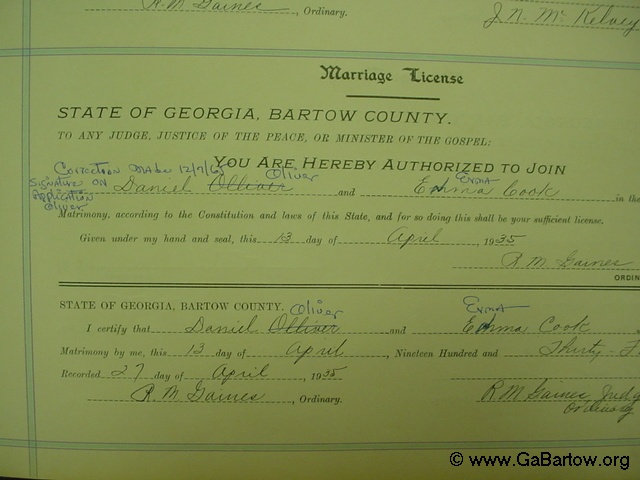 R. M. Gaines, Ordinary. J. N. McKelvey
Marriage License
STATE OF GEORGIA, BARTOW COUNTY.
TO ANY JUDGE, JUSTICE OF THE PEACE, OR MINISTER OF THE GOSPEL:
YOU ARE HEREBY AUTHORIZED TO JOIN
Correction Made 12/7/65 Oliver Erma
Signature on Daniel Olliver and Emma Cook in the
Application
Oliver
Matrimony, according to the Constitution and laws of this State, and for so doing this shall be your sufficient license.
Given under my hand and seal, this 13 day of April, 1935
R M Gaines
ORDIN
STATE OF GEORGIA, BARTOW COUNTY. Oliver Erma
I certify that Daniel Olliver and Emma Cook
Matrimony by me, this 13 day of April, Nineteen Hundred and Thirty-F
Recorded 27 day of April, 1935
R. M Gaines, Ordinary. R M Gaines Judge
Ordinary
© www.GaBartow.org